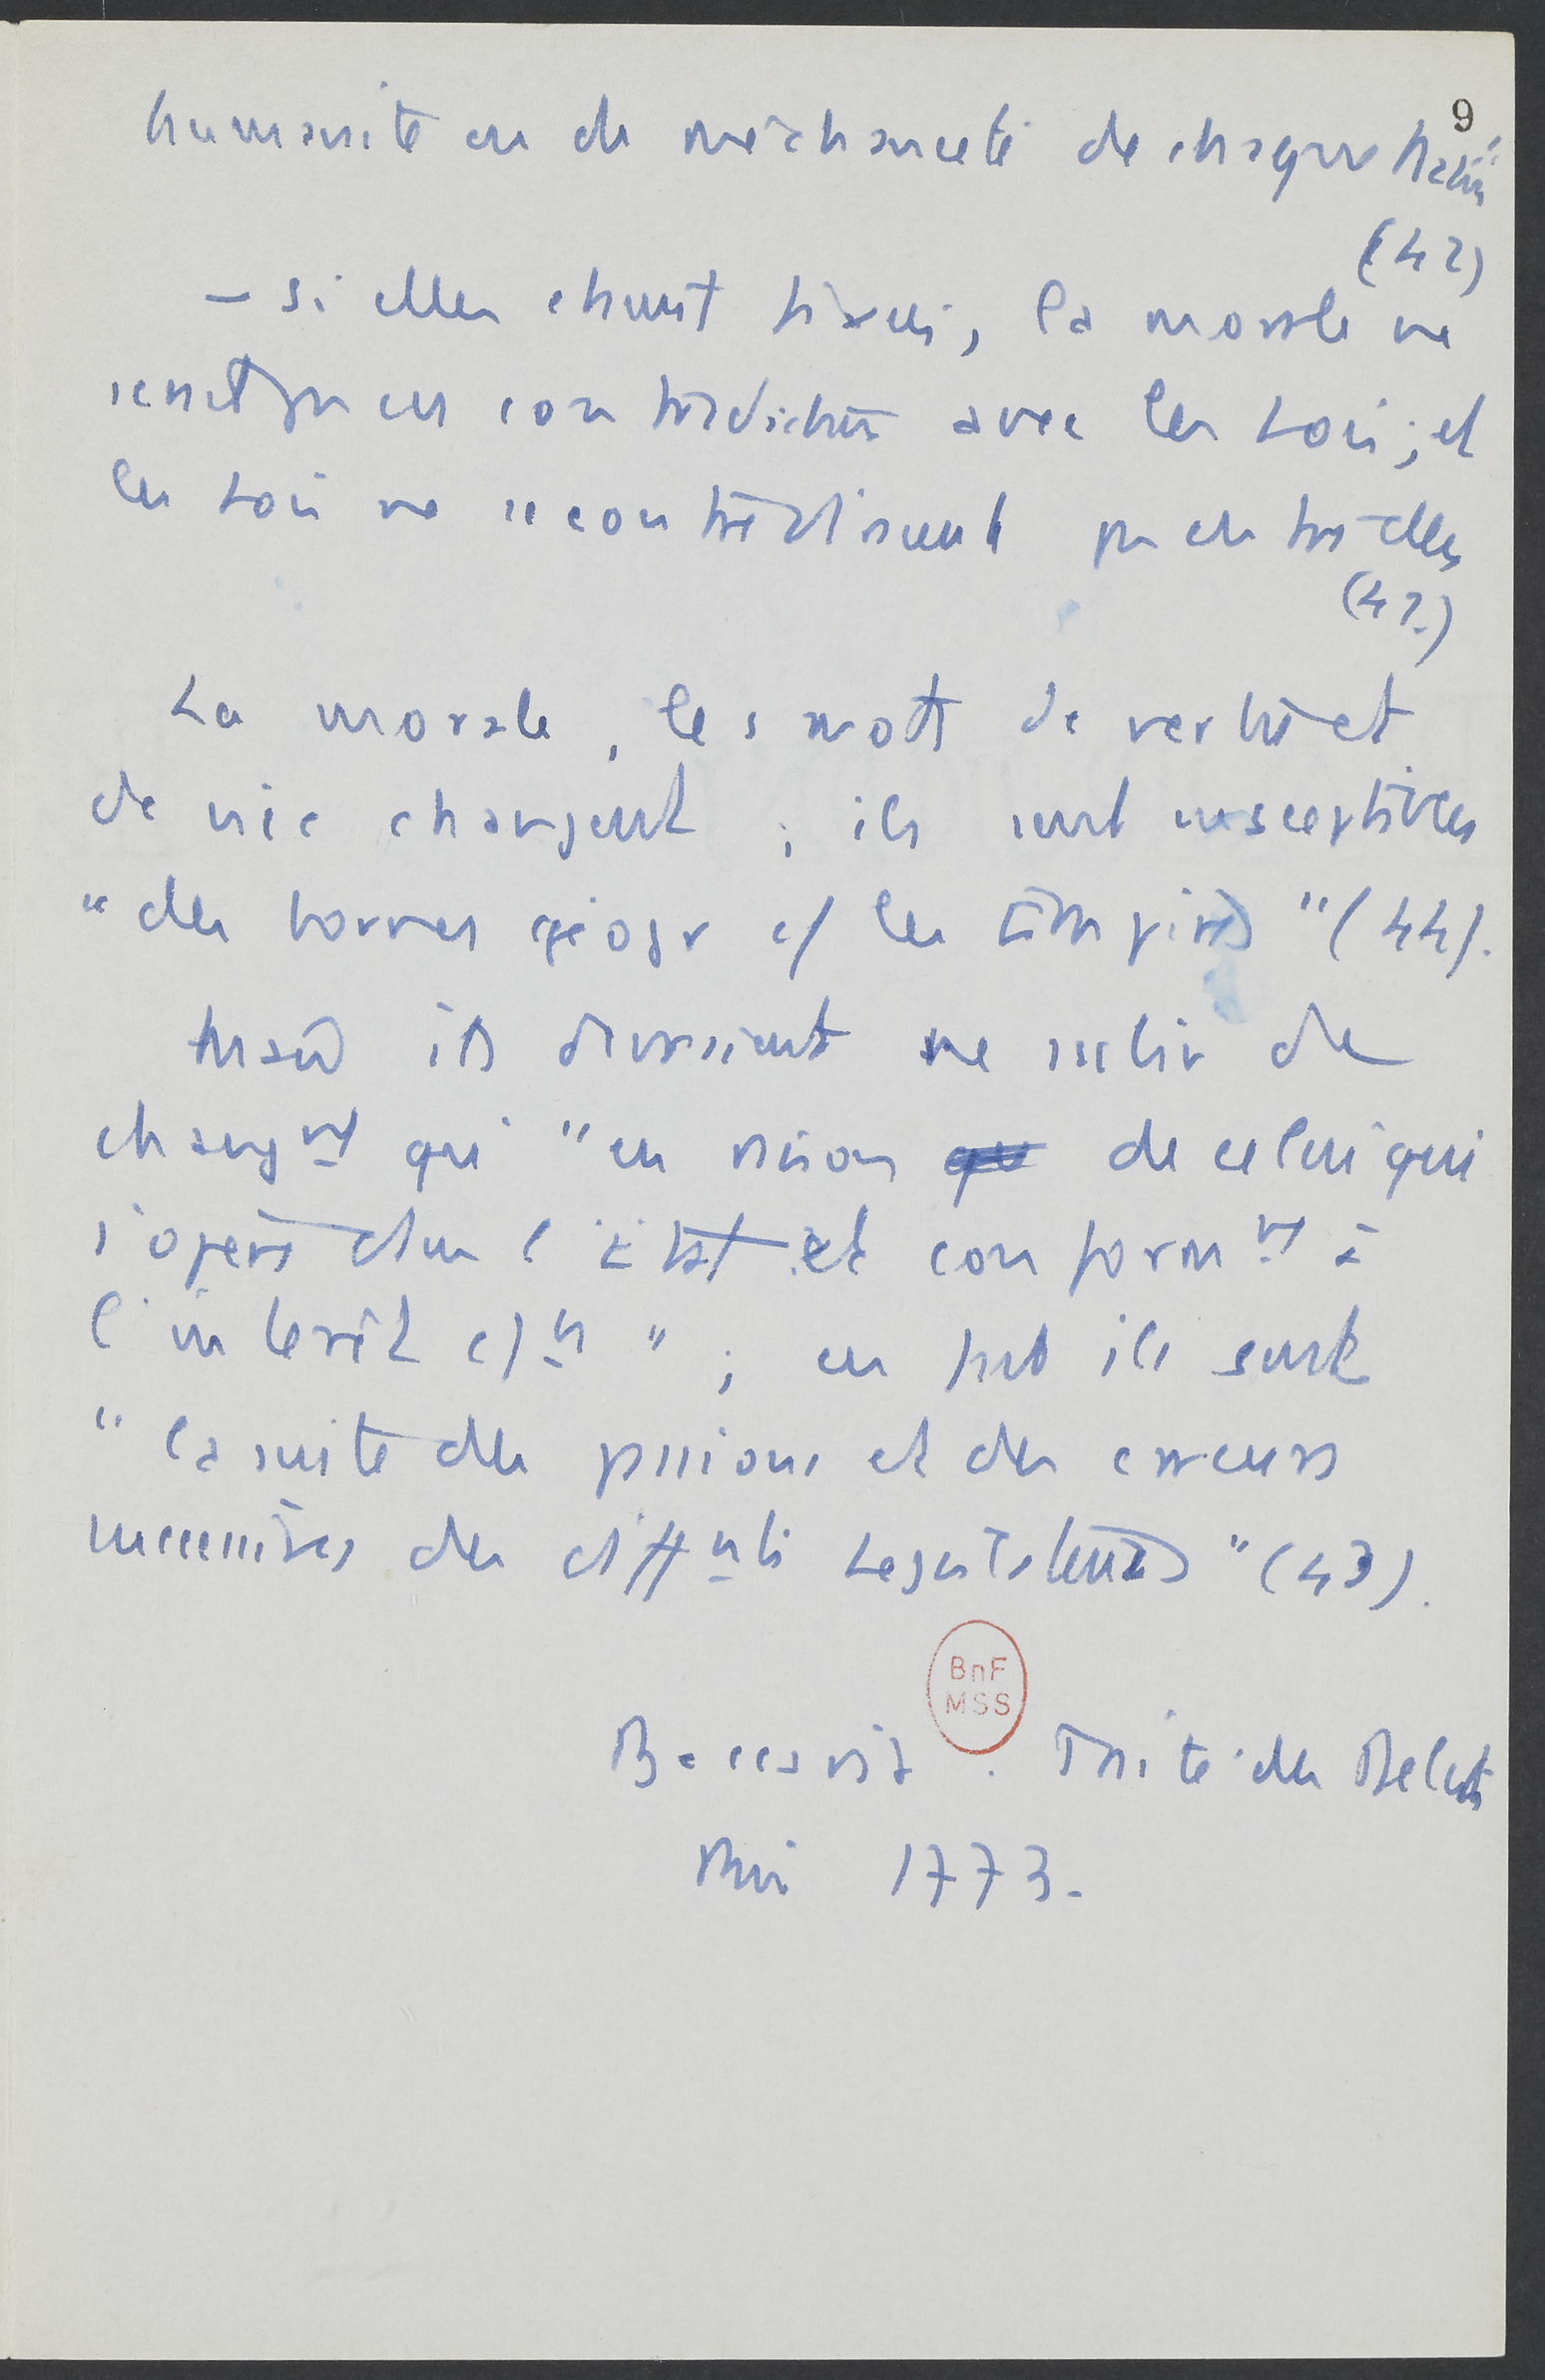 9
humanité ou de méchanceté de chaque
(42)
– si elles étaient fixées, la morale ne
serait pas en contradiction avec les Lois ; et
les Lois ne se contrediraient pas entre elles
(42)
La morale, les mots de vertu et
de vice changent ; ils sont susceptibles
"des bornes géogr c/ les Empires" (44).
Mais ils devraient ne subir de
changnt qui "en raison de celui qui
s'opère dans l'Etat et conformnt à
l'intérêt c/n" ; en fait ils sont
"la suite des passions et des erreurs
successives des diffnts Legislateurs" (43).
BnF
MSS
Beccaria. Traité des Delits
1773.